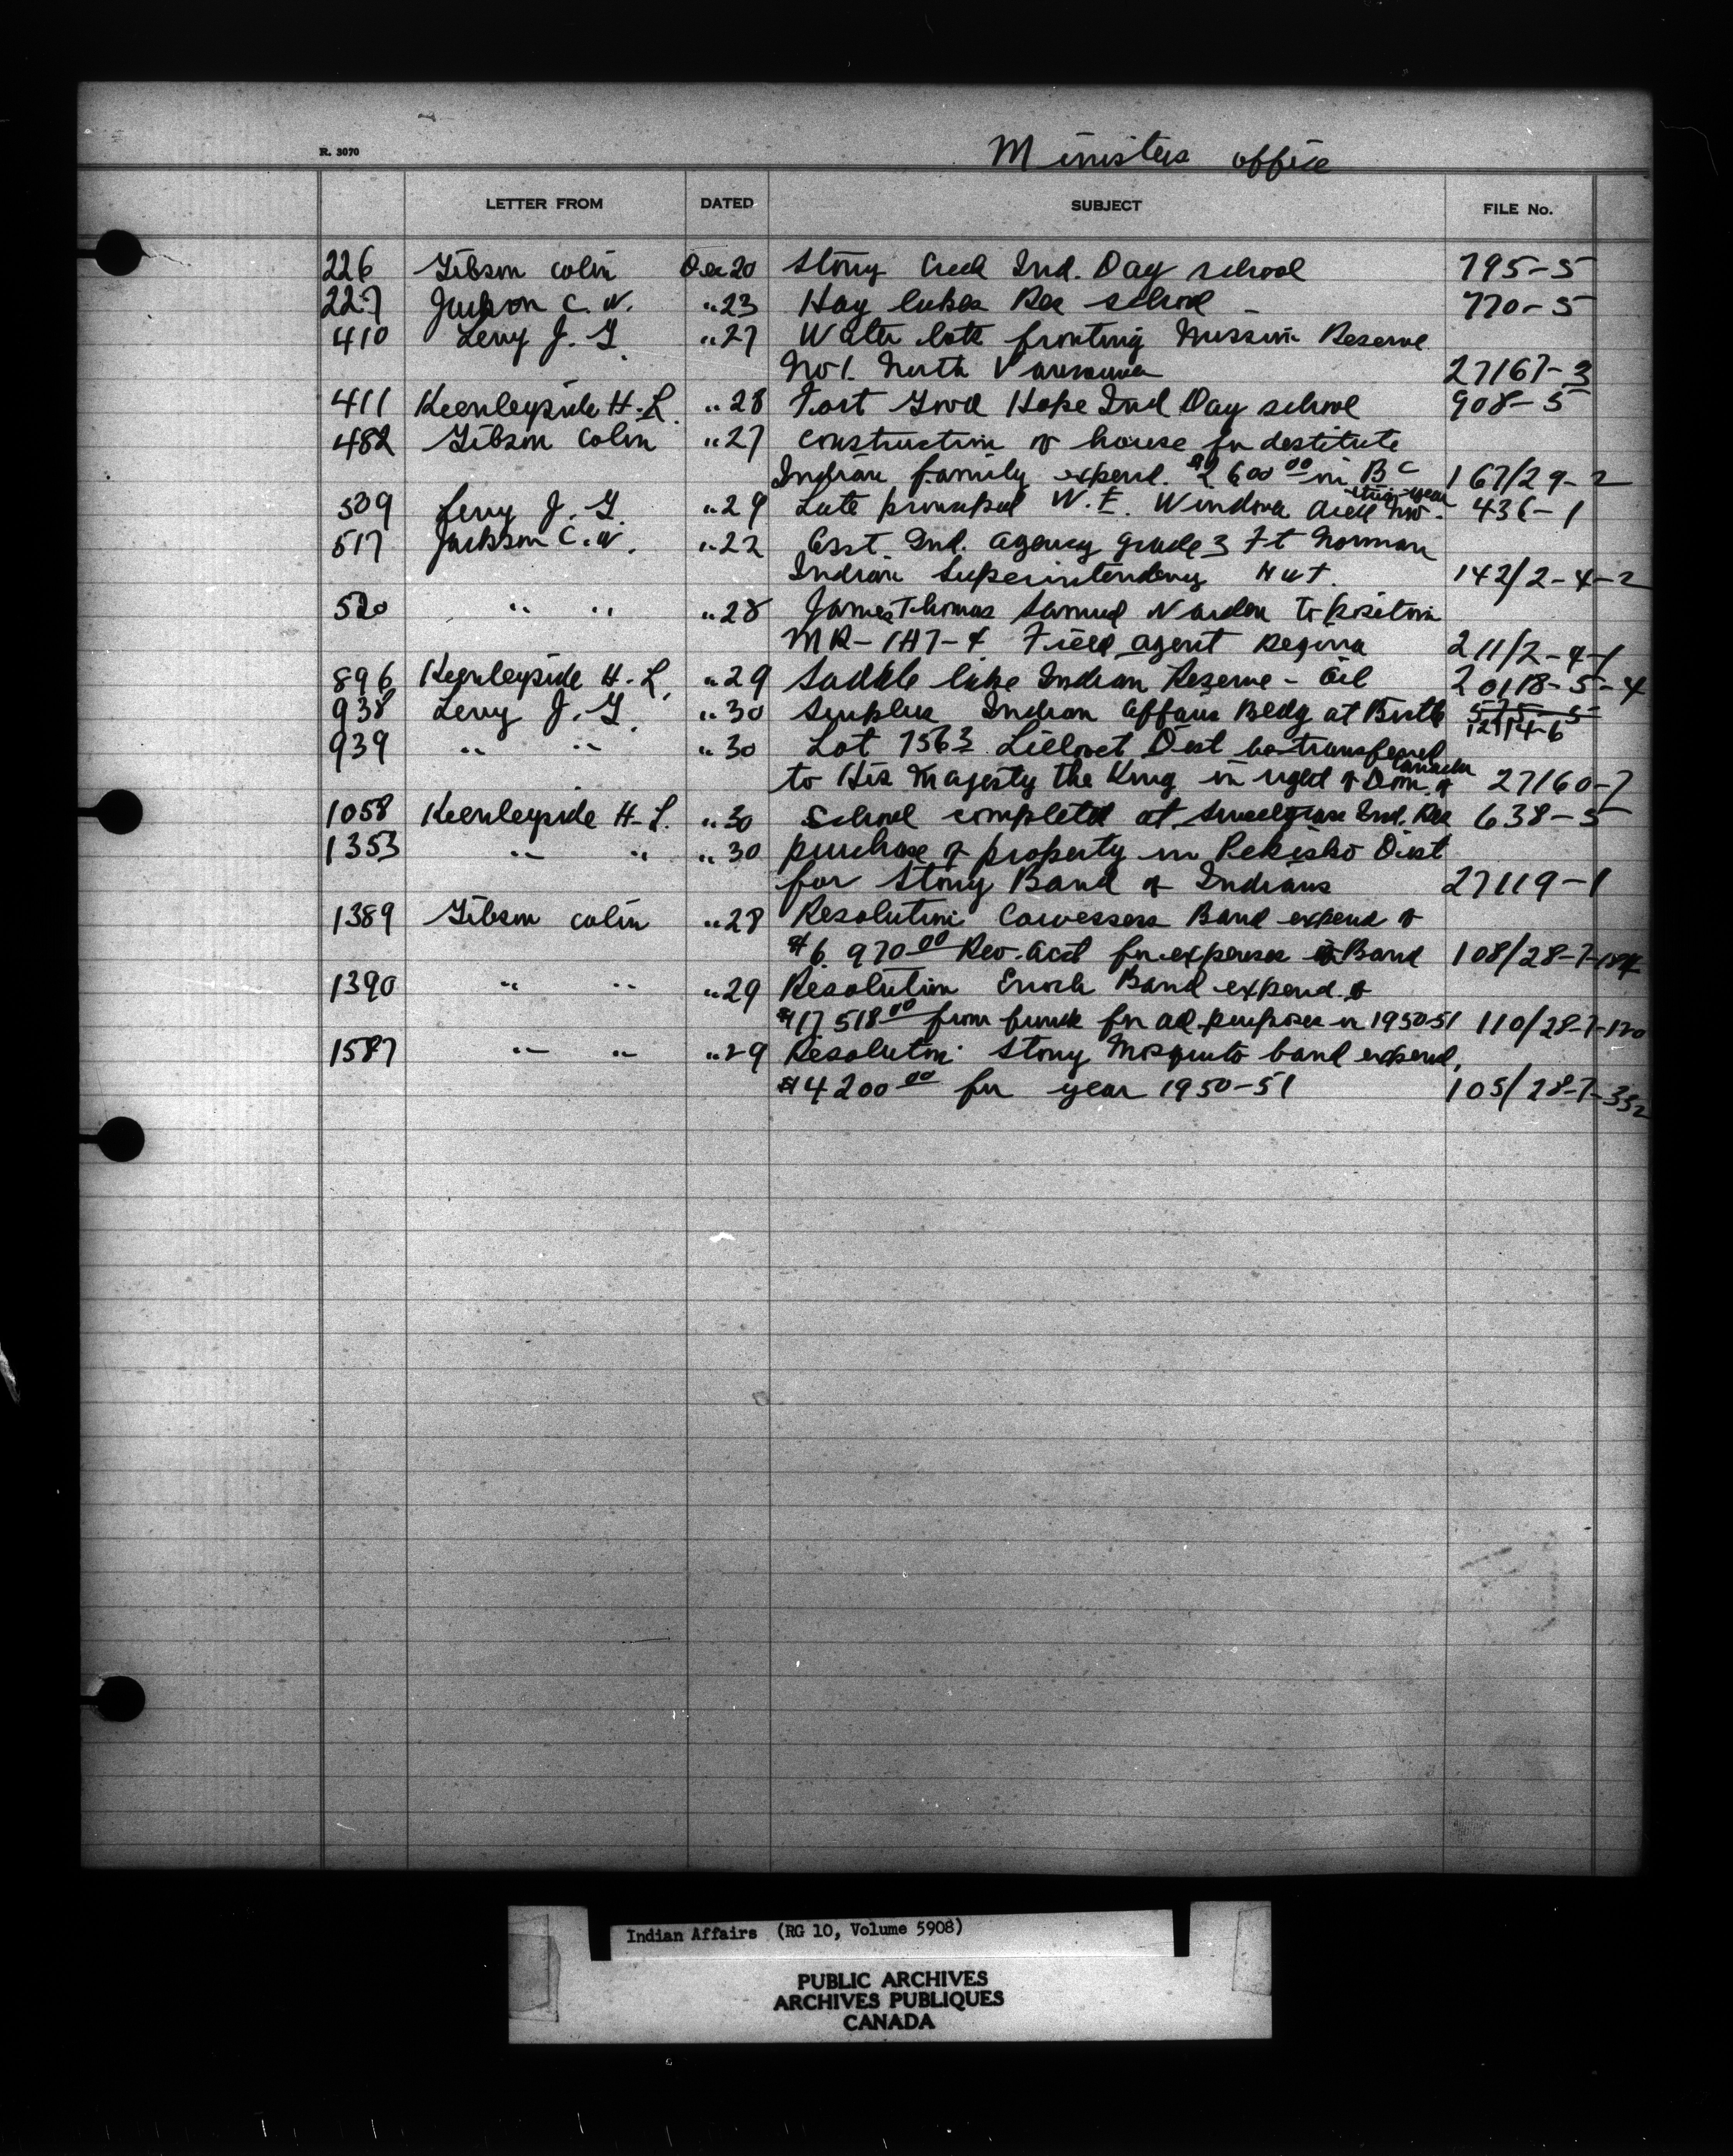 R. 3070
Ministers office
LETTER FROM DATED SUBJECT FILE No.
226 Gibson Colin Dec 20 Stony Creek Ind. Day school 795-5
227 Jackson C. W. " 23 Hay lakes Res school - 770-5
410 Levy J. G. " 27 Water lots fronting Mission Reserve
No 1. North Vancouver 27167-3
411 Keenleyside H. L. " 28 Fort Good Hope Ind Day school 908-5
482 Gibson Colin " 27 construction of house for destitute
Indian family expend. $2600 00 in B C 167/29-2
509 Levy J. G. " 29 Late principal W. E. 436-1
517 Jackson C. W. " 22 Asst. Ind. agency grade 3 Ft Norman
Indian Superintendency N W T. 142/2-4-2
520 " " " 28 James Thomas Samuel Warden to position
MR-1A7-4 Field agent Regina 211/2-4-1
896 Keenleyside H. L. " 29 Saddle lake Indian Reserve - Oil 20118-5-4
938 Levy J. G. " 30 Surplus Indian Affairs Bldg at Birtle 575-5
12114-6
939 " " " 30 Lot 7563 Lillooet Dist be transferred
to His Majesty the King in right of Dom. of Canada 27160-7
1058 Keenleyside H. L. " 30 School completed at Sweetgrass Ind. Res 638-5
1353 " " " 30 purchase of property in Pekisko Dist
for Stony Band of Indians 27119-1
1389 Gibson Colin " 28 Resolution Cowessess Band expend of
$6,970 00 Rev. acct for expenses of Band 108/28-7-
1390 " " " 29 Resolution Enoch Band expend. of
$17518 00 from funds for ad. purposes in 1950-51 110/28-7-120
1587 " " " 29 Resolution Stony Mosquito band expend,
$4200 00 for year 1950-51 105/28-7-332
Indian Affairs (RG 10, Volume 5908)
PUBLIC ARCHIVES
ARCHIVES PUBLIQUES
CANADA